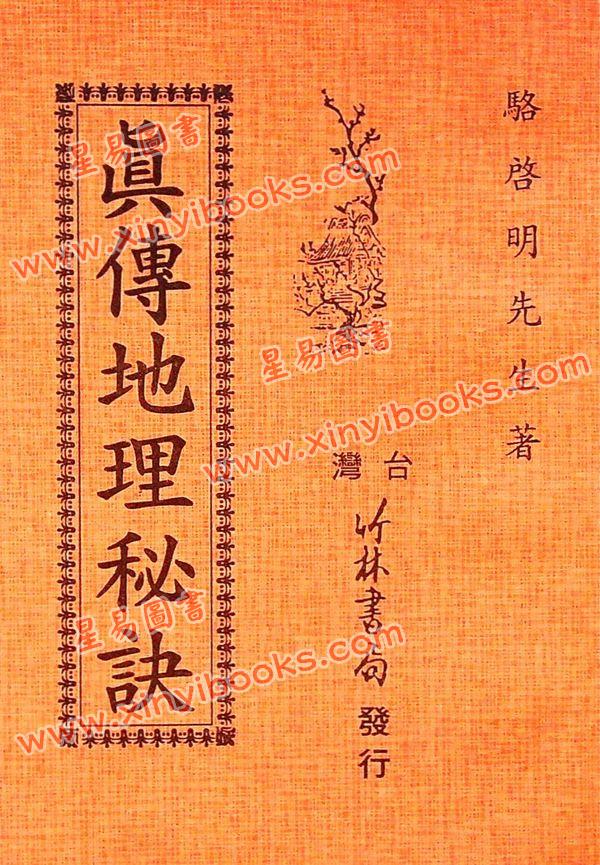 駱啓明先生著
台灣
竹林書局發行
眞傳地理秘訣
星易圖書
www.xinyibooks.com
星易圖書
www.xinyibooks.com
星易圖書
www.xinyibooks.com